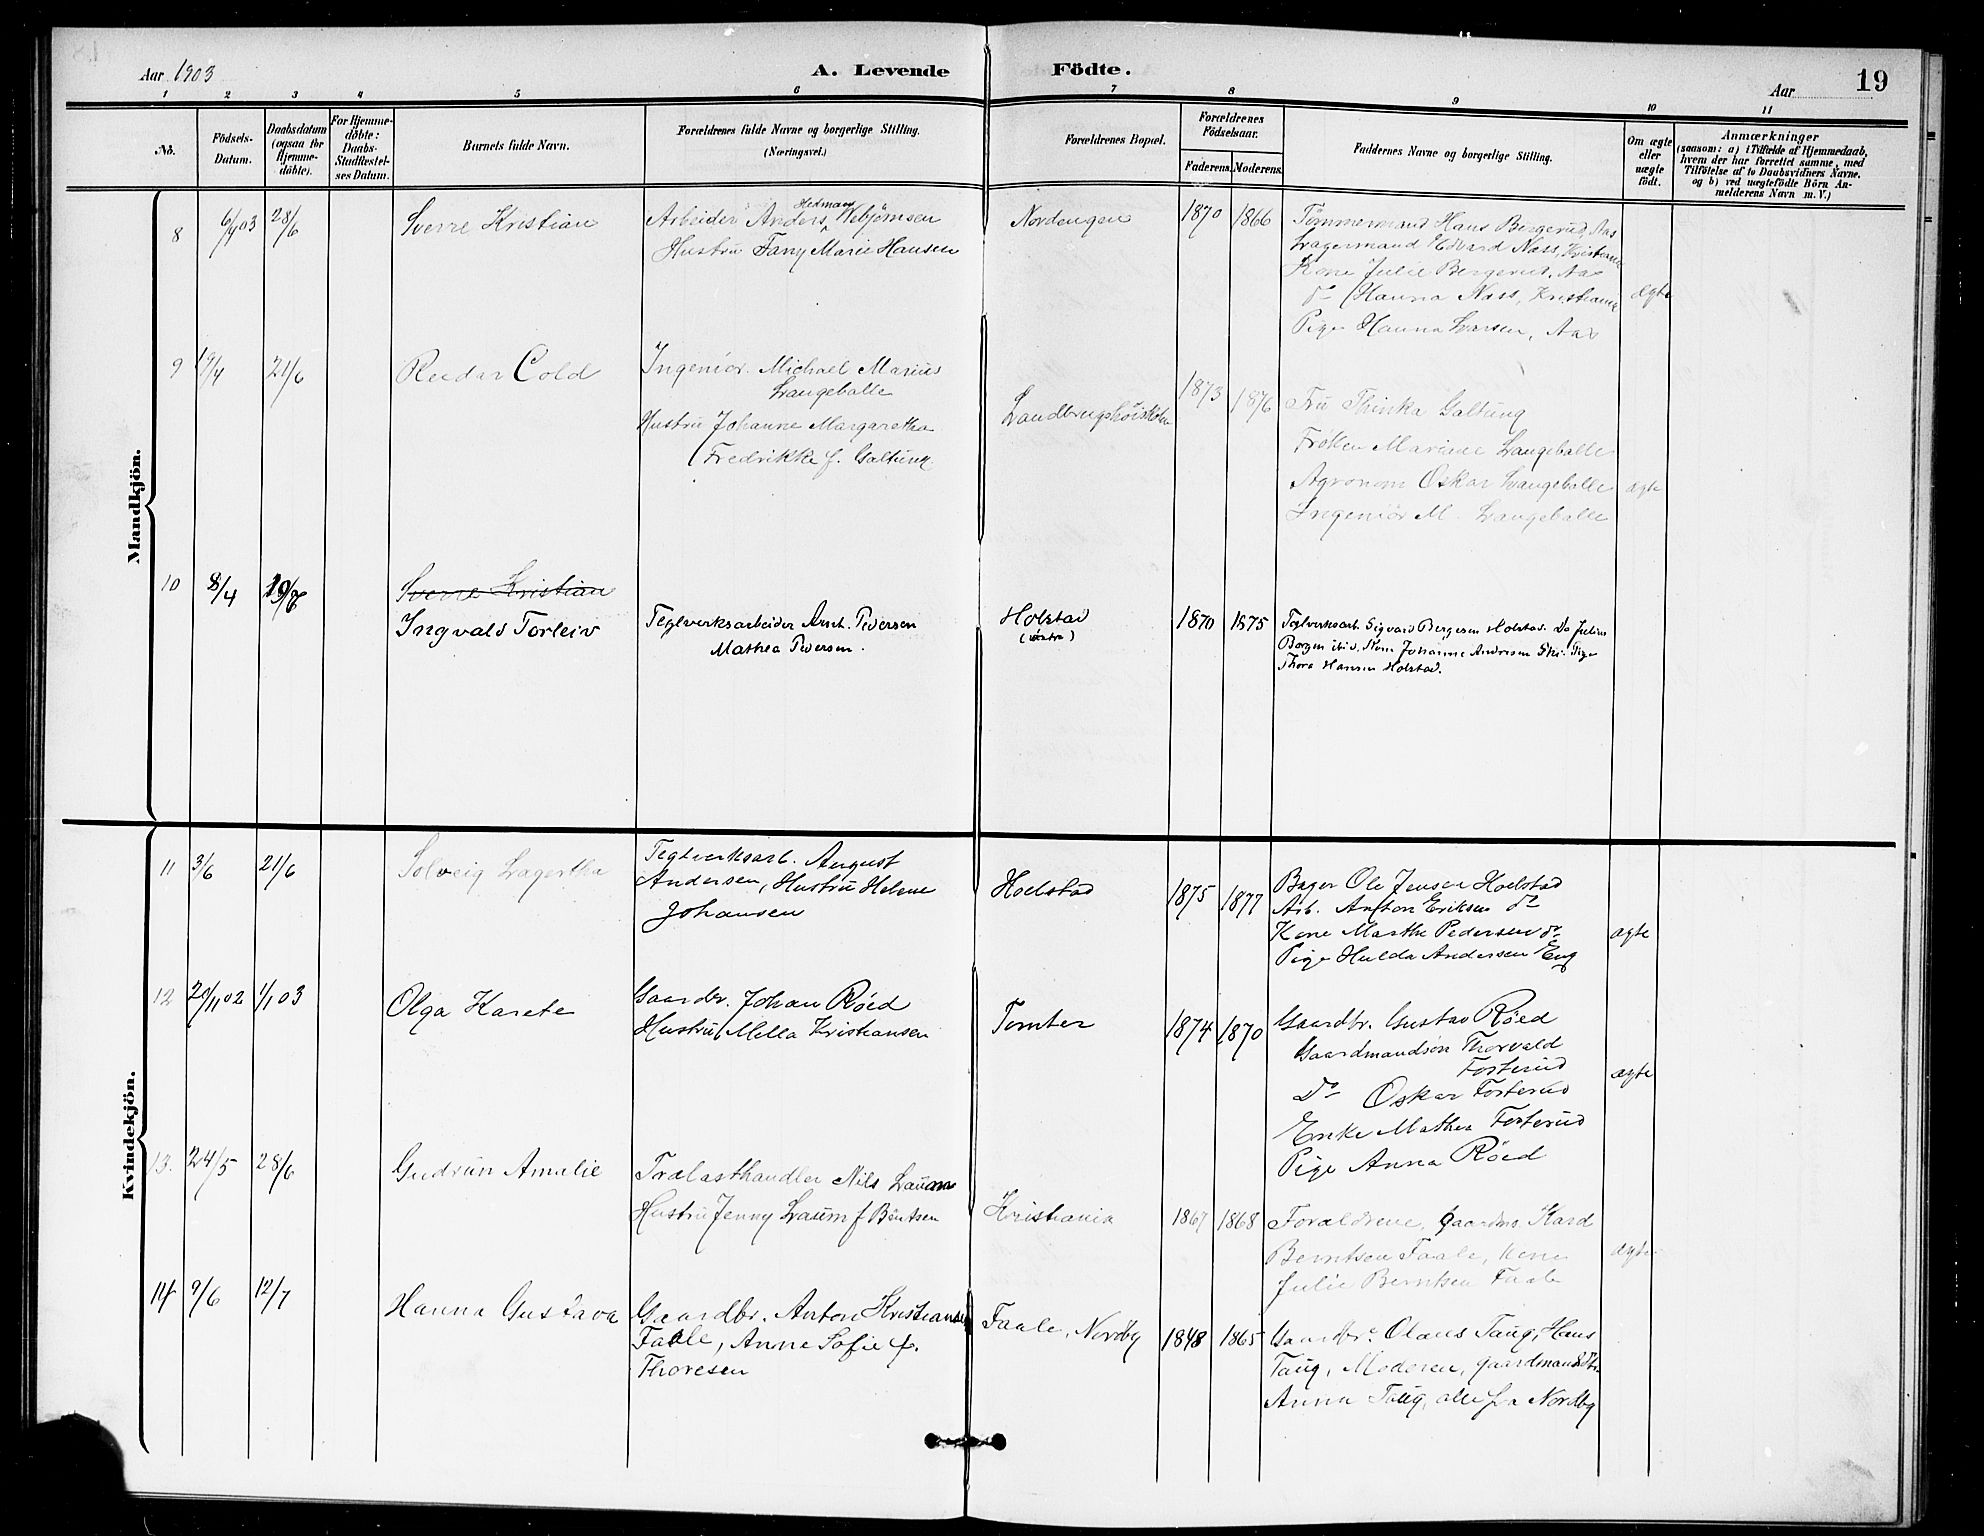 Aar 1903
A. Levende Födte.
Aar
19
1 2 3 4 5 6 7 8 9 10 11
No.
Födsels-
Datum.
Daabsdatum
(ogsaa for
Hjemme-
döbte).
For Hjemme-
döbte:
Daabs-
Stadfæstel-
ses Datum.
Barnets fulde Navn.
Forældrenes fulde Navne og borgerlige Stilling.
(Næringsvei.)
Forældrenes Bopæl.
Forældrenes
Födselsaar.
Faderens.
Moderens.
Faddernes Navne og borgerlige Stilling.
Om ægte
eller
uægte
födt.
Anmærkninger
(saasom: a) i Tilfælde af Hjemmedaab,
hvem der har forrettet samme, med
Tilföielse af to Daabsvidners Navne.
og b) ved uægtefödte Börn An-
melderens Navn m. V.)
Mandkjön.
8 6/4 03 28/6
Sverre Kristian
Hedman
Arbeider Anders Vebjørnsen
Hustru Fany Marie Hansen
Nordengen
1870 1866
Tømmermand Hans Bergerud, Aas
Lagermand Edvard Næss, Kristiania
Kone Julie Bergerud, Aas
do Hanna Næss, Kristiania
Pige Hanna Larsen, Aas
ægte
9 19/4 21/6
Reidar Cold
Ingeniør Michael Marius
Langeballe
Hustru Johanne Margaretha
Fredrikke f. Galtung
Landbrugshøiskolen
1873 1876
Fru Thinka Galtung
Frøken Mariane Langeballe
Agronom Oskar Langeballe
Ingeniör M. Langeballe
ægte
10 8/4
Sverre Kristian
Ingvald Torleiv
Teglverksarbeider Anch. Pedersen
Mathea Pedersen.
Holstad
1870 1875
Teglverksarb. Sigvard Bergesen Holstad. Do Julius
Borgen ibid. Kone Johanne Andresen Ski. Pige
Thora Hansen Holstad.
Kvindekjön.
11 3/6 21/6
Solveig Lagertha
Teglverksarb. August
Andersen, Hustru Helene
Johansen
Holstad
1875 1877
Bager Ole Jensen Holstad
Arb. Anton Eriksen do
Kone Marthe Pedersen do
Pige Hulda Andersen Eng
ægte
12 20/11 02 1/1 03
Olga Karete
Gaardbr. Johan Röed
Hustru Mella Kristiansen
Tomter
1874 1870
Gaardbr. Gustav Röed
Gaardmandsøn Thorvald
Fosterud
Do Oskar Fosterud
Enke Mathea Fosterud
Pige Anna Röed
ægte
13. 24/5 28/6
Gudrun Amalie
Trælasthandler Nils Laum
Hustru Jenny Laum f Berntsen
Kristiania
1867 1868
Forældrene, Gaardm. Kard
Berntsen Faale, Kone
Julie Berntsen Faale
ægte
14 9/6 12/7
Hanna Gustava
Gaardbr. Anton Kristiansen
Faale, Anne Sofie f.
Thoresen
Faale, Nordby
1848 1865
Gaardbr. Olaus Taug, Hans
Taug, Moderen, gaardmandsdtr.
Anna Taug, alle fra Nordby